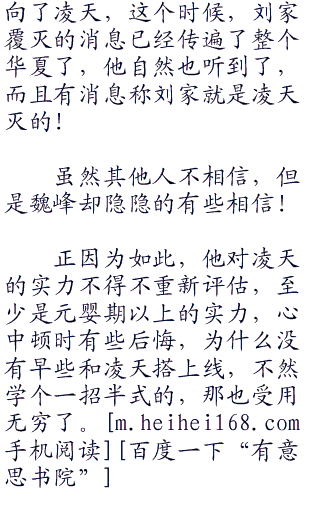 向了凌天，这个时候，刘家
覆灭的消息已经传遍了整个
华夏了，他自然也听到了，
而且有消息称刘家就是凌天
灭的！
虽然其他人不相信，但
是魏峰却隐隐的有些相信！
正因为如此，他对凌天
的实力不得不重新评估，至
少是元婴期以上的实力，心
中顿时有些后悔，为什么没
有早些和凌天搭上线，不然
学个一招半式的，那也受用
无穷了。[m.heihei168.com
手机阅读][百度一下“有意
思书院”]